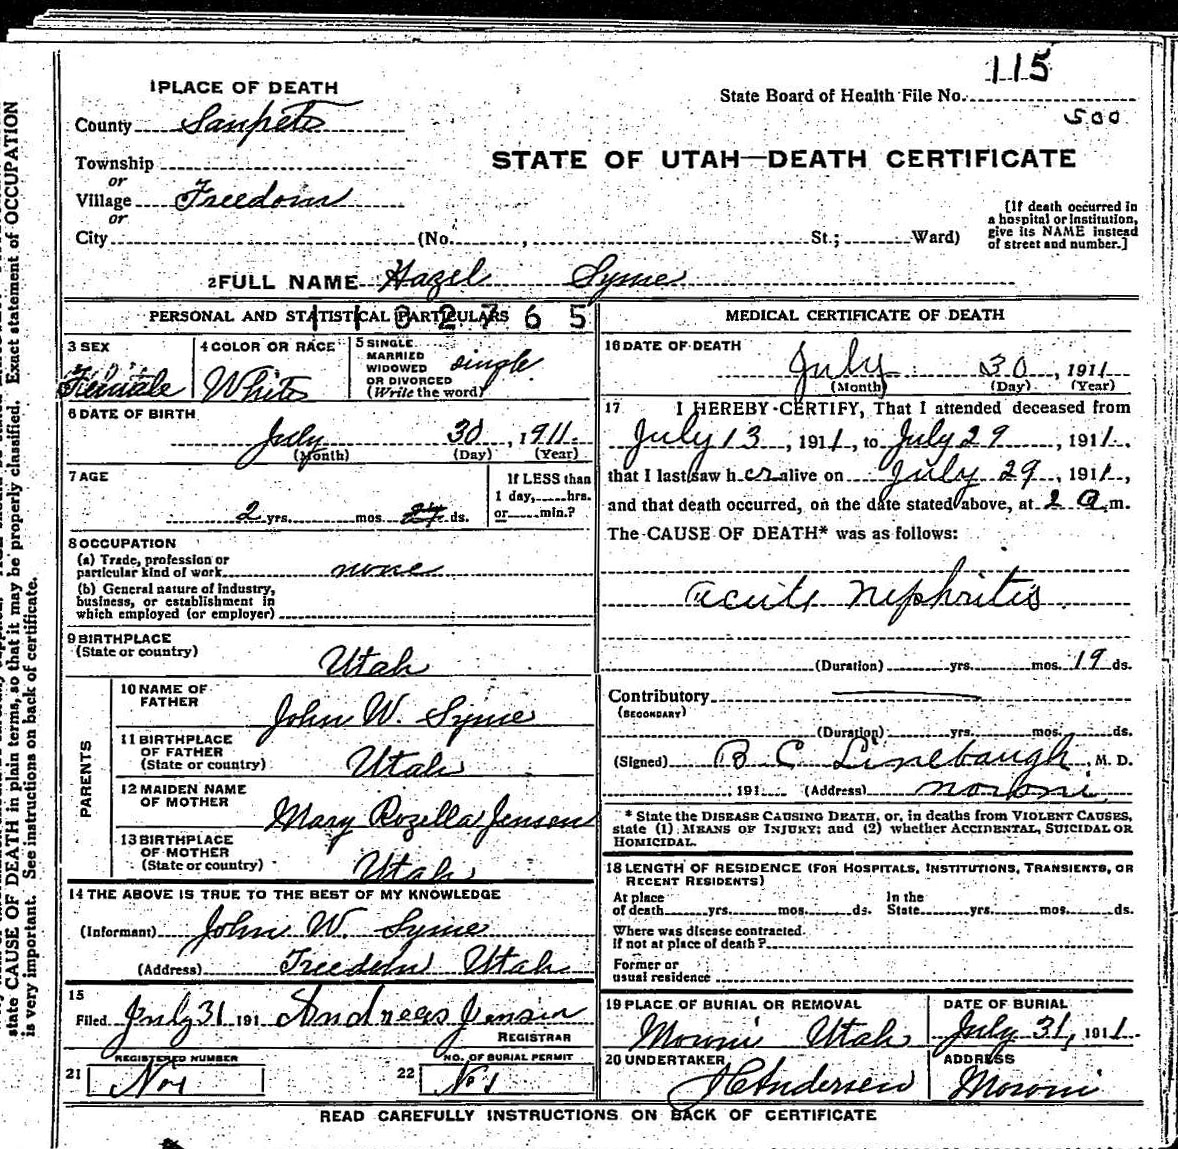 115
State Board of Health File No.
500
1 PLACE OF DEATH
County Sanpete
STATE OF UTAH—DEATH CERTIFICATE
Township
or
Village Freedom
or
City (No. , St.; Ward)
[If death occurred in
a hospital or institution,
give its NAME instead
of street and number.]
2 FULL NAME Hazel Syme
PERSONAL AND STATISTICAL PARTICULARS
1102765
3 SEX
Female
4 COLOR OR RACE
White
5 SINGLE
MARRIED
WIDOWED
OR DIVORCED
(Write the word)
single
6 DATE OF BIRTH
July 30, 1911.
(Month) (Day) (Year)
7 AGE
2 yrs. mos. ds.
If LESS than
1 day, hrs.
or min.?
8 OCCUPATION
(a) Trade, profession or
particular kind of work none
(b) General nature of industry,
business, or establishment in
which employed (or employer)
9 BIRTHPLACE
(State or country)
Utah
PARENTS
10 NAME OF
FATHER
John W. Syme
11 BIRTHPLACE
OF FATHER
(State or country)
Utah
12 MAIDEN NAME
OF MOTHER
Mary Rozella Jensen
13 BIRTHPLACE
OF MOTHER
(State or country)
Utah
14 THE ABOVE IS TRUE TO THE BEST OF MY KNOWLEDGE
(Informant) John W. Syme
(Address) Freedom Utah
15
Filed July 31 191 Andreas Jensen
REGISTRAR
REGISTERED NUMBER
21 No 1
NO. OF BURIAL PERMIT
22 No 1
MEDICAL CERTIFICATE OF DEATH
16 DATE OF DEATH
July 30, 1911
(Month) (Day) (Year)
17 I HEREBY CERTIFY, That I attended deceased from
July 13, 1911, to July 29, 1911.,
that I last saw her alive on July 29, 1911,
and that death occurred, on the date stated above, at 2 a.m.
The CAUSE OF DEATH* was as follows:
acute Nephritis
(Duration) yrs. mos. 19 ds.
Contributory
(SECONDARY)
(Duration) yrs. mos. ds.
(Signed) B C Linebaugh, M. D.
, 191 (Address) Moroni
* State the DISEASE CAUSING DEATH, or, in deaths from VIOLENT CAUSES,
state (1) MEANS OF INJURY; and (2) whether ACCIDENTAL, SUICIDAL OR
HOMICIDAL.
18 LENGTH OF RESIDENCE (FOR HOSPITALS, INSTITUTIONS, TRANSIENTS, OR
RECENT RESIDENTS)
At place
of death yrs. mos. ds.
In the
State yrs. mos. ds.
Where was disease contracted
if not at place of death?
Former or
usual residence
19 PLACE OF BURIAL OR REMOVAL
Moroni Utah
DATE OF BURIAL
July 31, 1911
20 UNDERTAKER
Andersen
ADDRESS
Moroni
READ CAREFULLY INSTRUCTIONS ON BACK OF CERTIFICATE
state CAUSE OF DEATH in plain terms, so that it may be properly classified. Exact statement of OCCUPATION
is very important. See instructions on back of certificate.